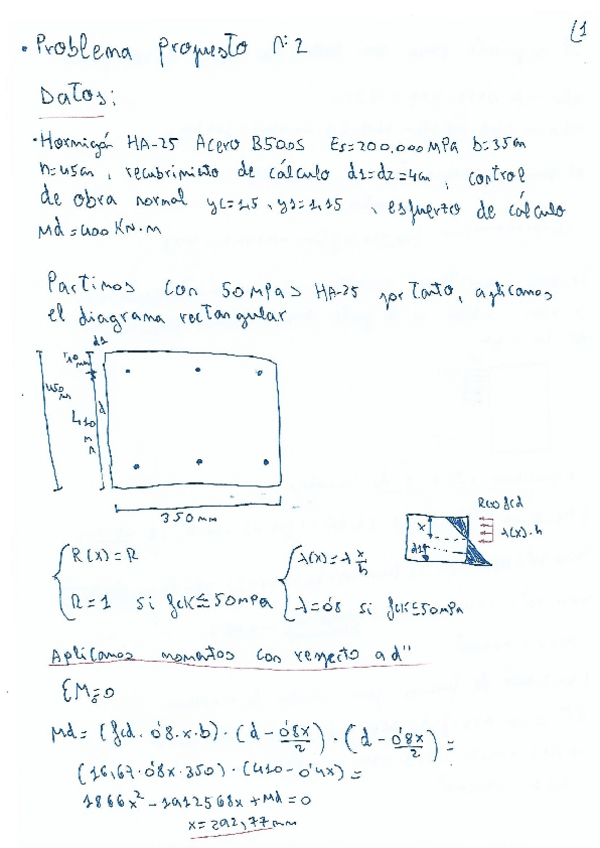 (1
• Problema propuesto N:2
Datos:
• Hormigón HA-25 Acero B500S Es=200.000MPa b=35cm
h=45cm, recubrimiento de cálculo d1=d2=4cm, control
de obra normal γc=1,5, γs=1,15, esfuerzo de cálculo
Md=400 KN·m
Partimos con 50MPa> HA-25 por tanto, aplicamos
el diagrama rectangular
d1
40mm
450mm
410mm
d
350mm
R(x) fcd
x
λ(x)·h
d1
R(x)=R
R=1 si fck≤50MPa
λ(x)=λ x/h
λ=0'8 si fck≤50MPa
Aplicamos momentos con respecto a d"
ΣM=0
Md=(fcd·0'8·x·b)·(d-0'8x/2)·(d-0'8x/2)=
(16,67·0'8x·350)·(410-0'4x)=
1866x²-1912568x+Md=0
x=292,77mm